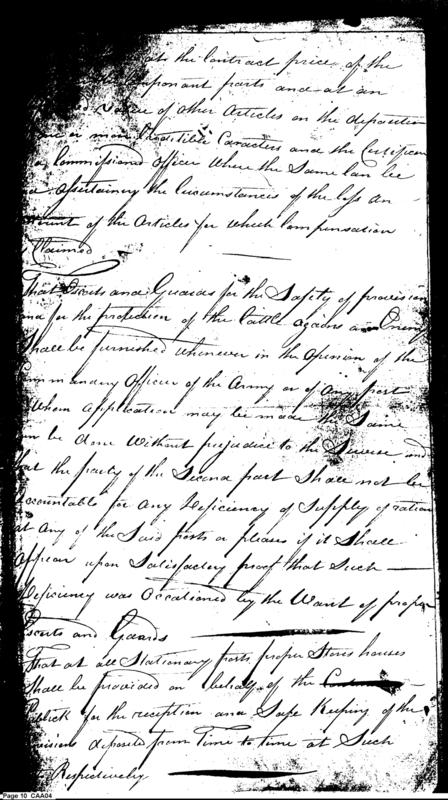 at the Contract price of the
Component parts and at an
value of other Articles on the deposition
one or more Creditible Caracters and the Certificate
a Commissioned officer where the Same Can be
assertaining the Circumstances of the loss an
of the Articles for which Compensation
Claimed
That Escorts and Guards for the Safety of provision
and for the protection of the Cattle against an Enemy
Shall be furnished whenever in the Opinion of the
Commanding Officer of the Army or of any post
whom application may be made the Same
can be done without prejudice to the Service and
that the party of the Second part Shall not be
accountable for any Deficiency of Supply of rations
at any of the Said posts or places if it Shall
appear upon Satisfactory proof that Such
Deficiency was Occationed by the Want of proper
Escorts and Guards
That at all Stationary posts proper Stores houses
Shall be provided on behalf of the
Publick for the reception and Safe Keeping of the
deposited from Time to time at Such
Respectively
Page 10 CAA04